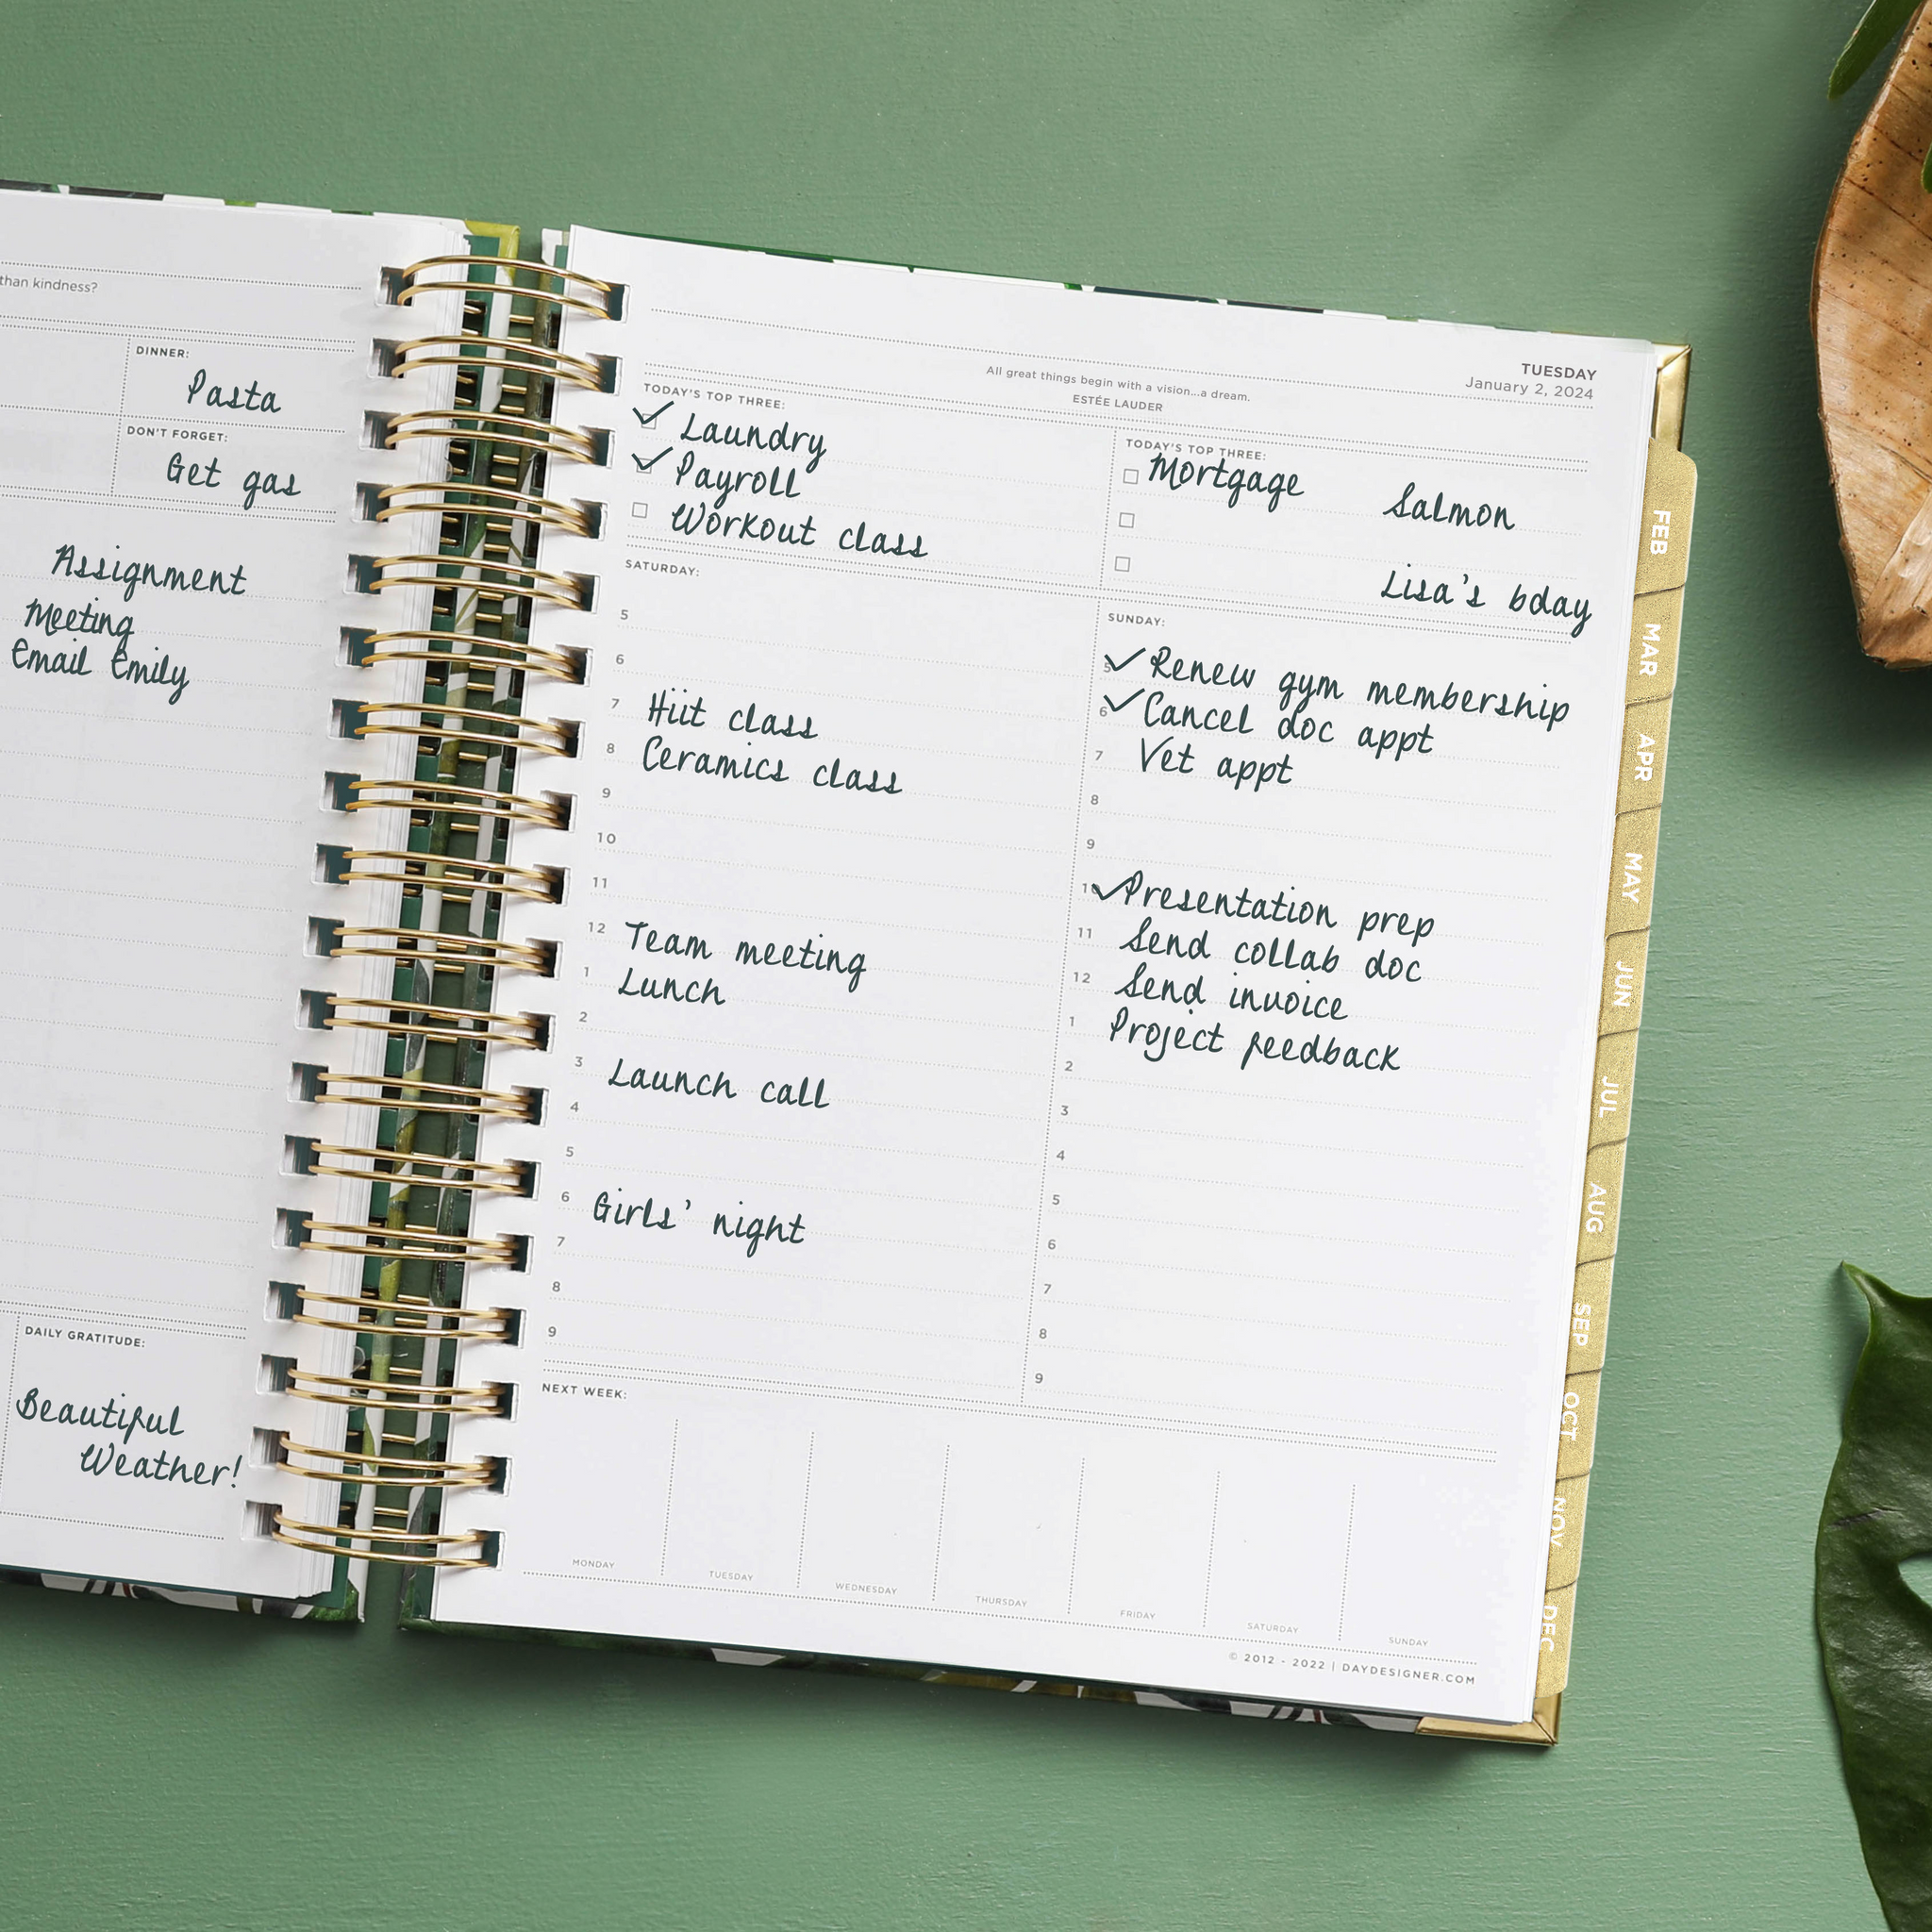 than kindness?
DINNER:
Pasta
DON'T FORGET:
Get gas
Assignment
Meeting
Email Emily
DAILY GRATITUDE:
Beautiful
Weather!
TUESDAY
January 2, 2024
All great things begin with a vision...a dream.
ESTÉE LAUDER
TODAY'S TOP THREE:
Laundry
Payroll
Workout class
TODAY'S TOP THREE:
Mortgage Salmon
Lisa's bday
SATURDAY:
5
6
7 Hiit class
8 Ceramics class
9
10
11
12 Team meeting
1 Lunch
2
3 Launch call
4
5
6 Girls' night
7
8
9
SUNDAY:
5 Renew gym membership
6 Cancel doc appt
7 Vet appt
8
9
10 Presentation prep
11 Send collab doc
12 Send invoice
1 Project feedback
2
3
4
5
6
7
8
9
NEXT WEEK:
MONDAY TUESDAY WEDNESDAY THURSDAY FRIDAY SATURDAY SUNDAY
© 2012 - 2022 | DAYDESIGNER.COM
FEB
MAR
APR
MAY
JUN
JUL
AUG
SEP
OCT
NOV
DEC